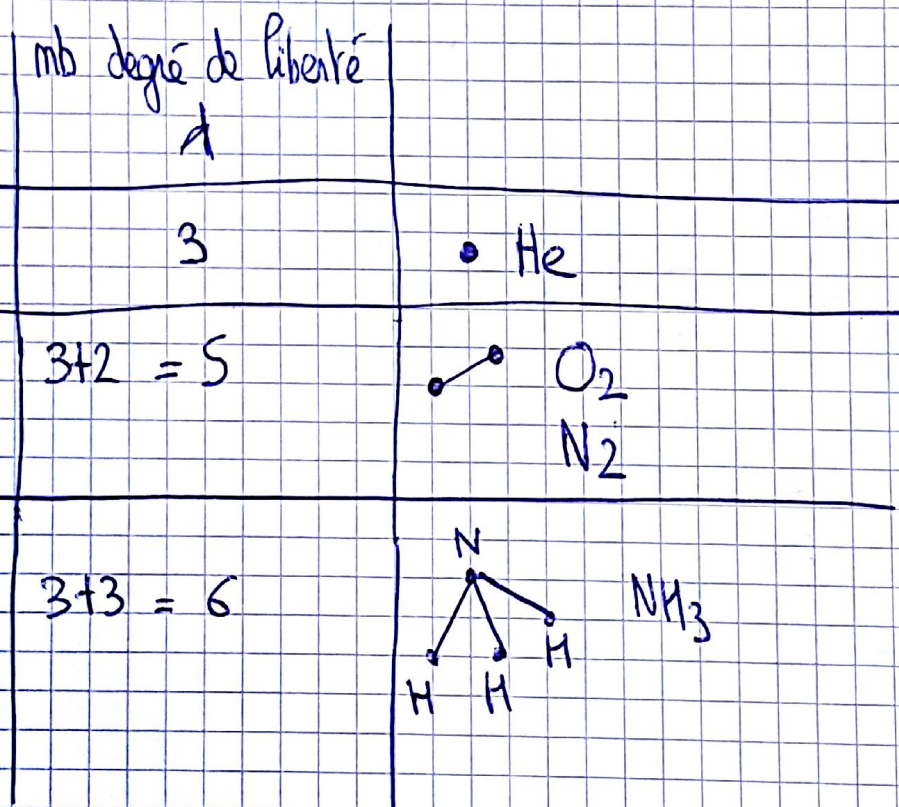 nb degré de liberté
d
3
He
3+2 = 5
O2
N2
3+3 = 6
N
NH3
H H H